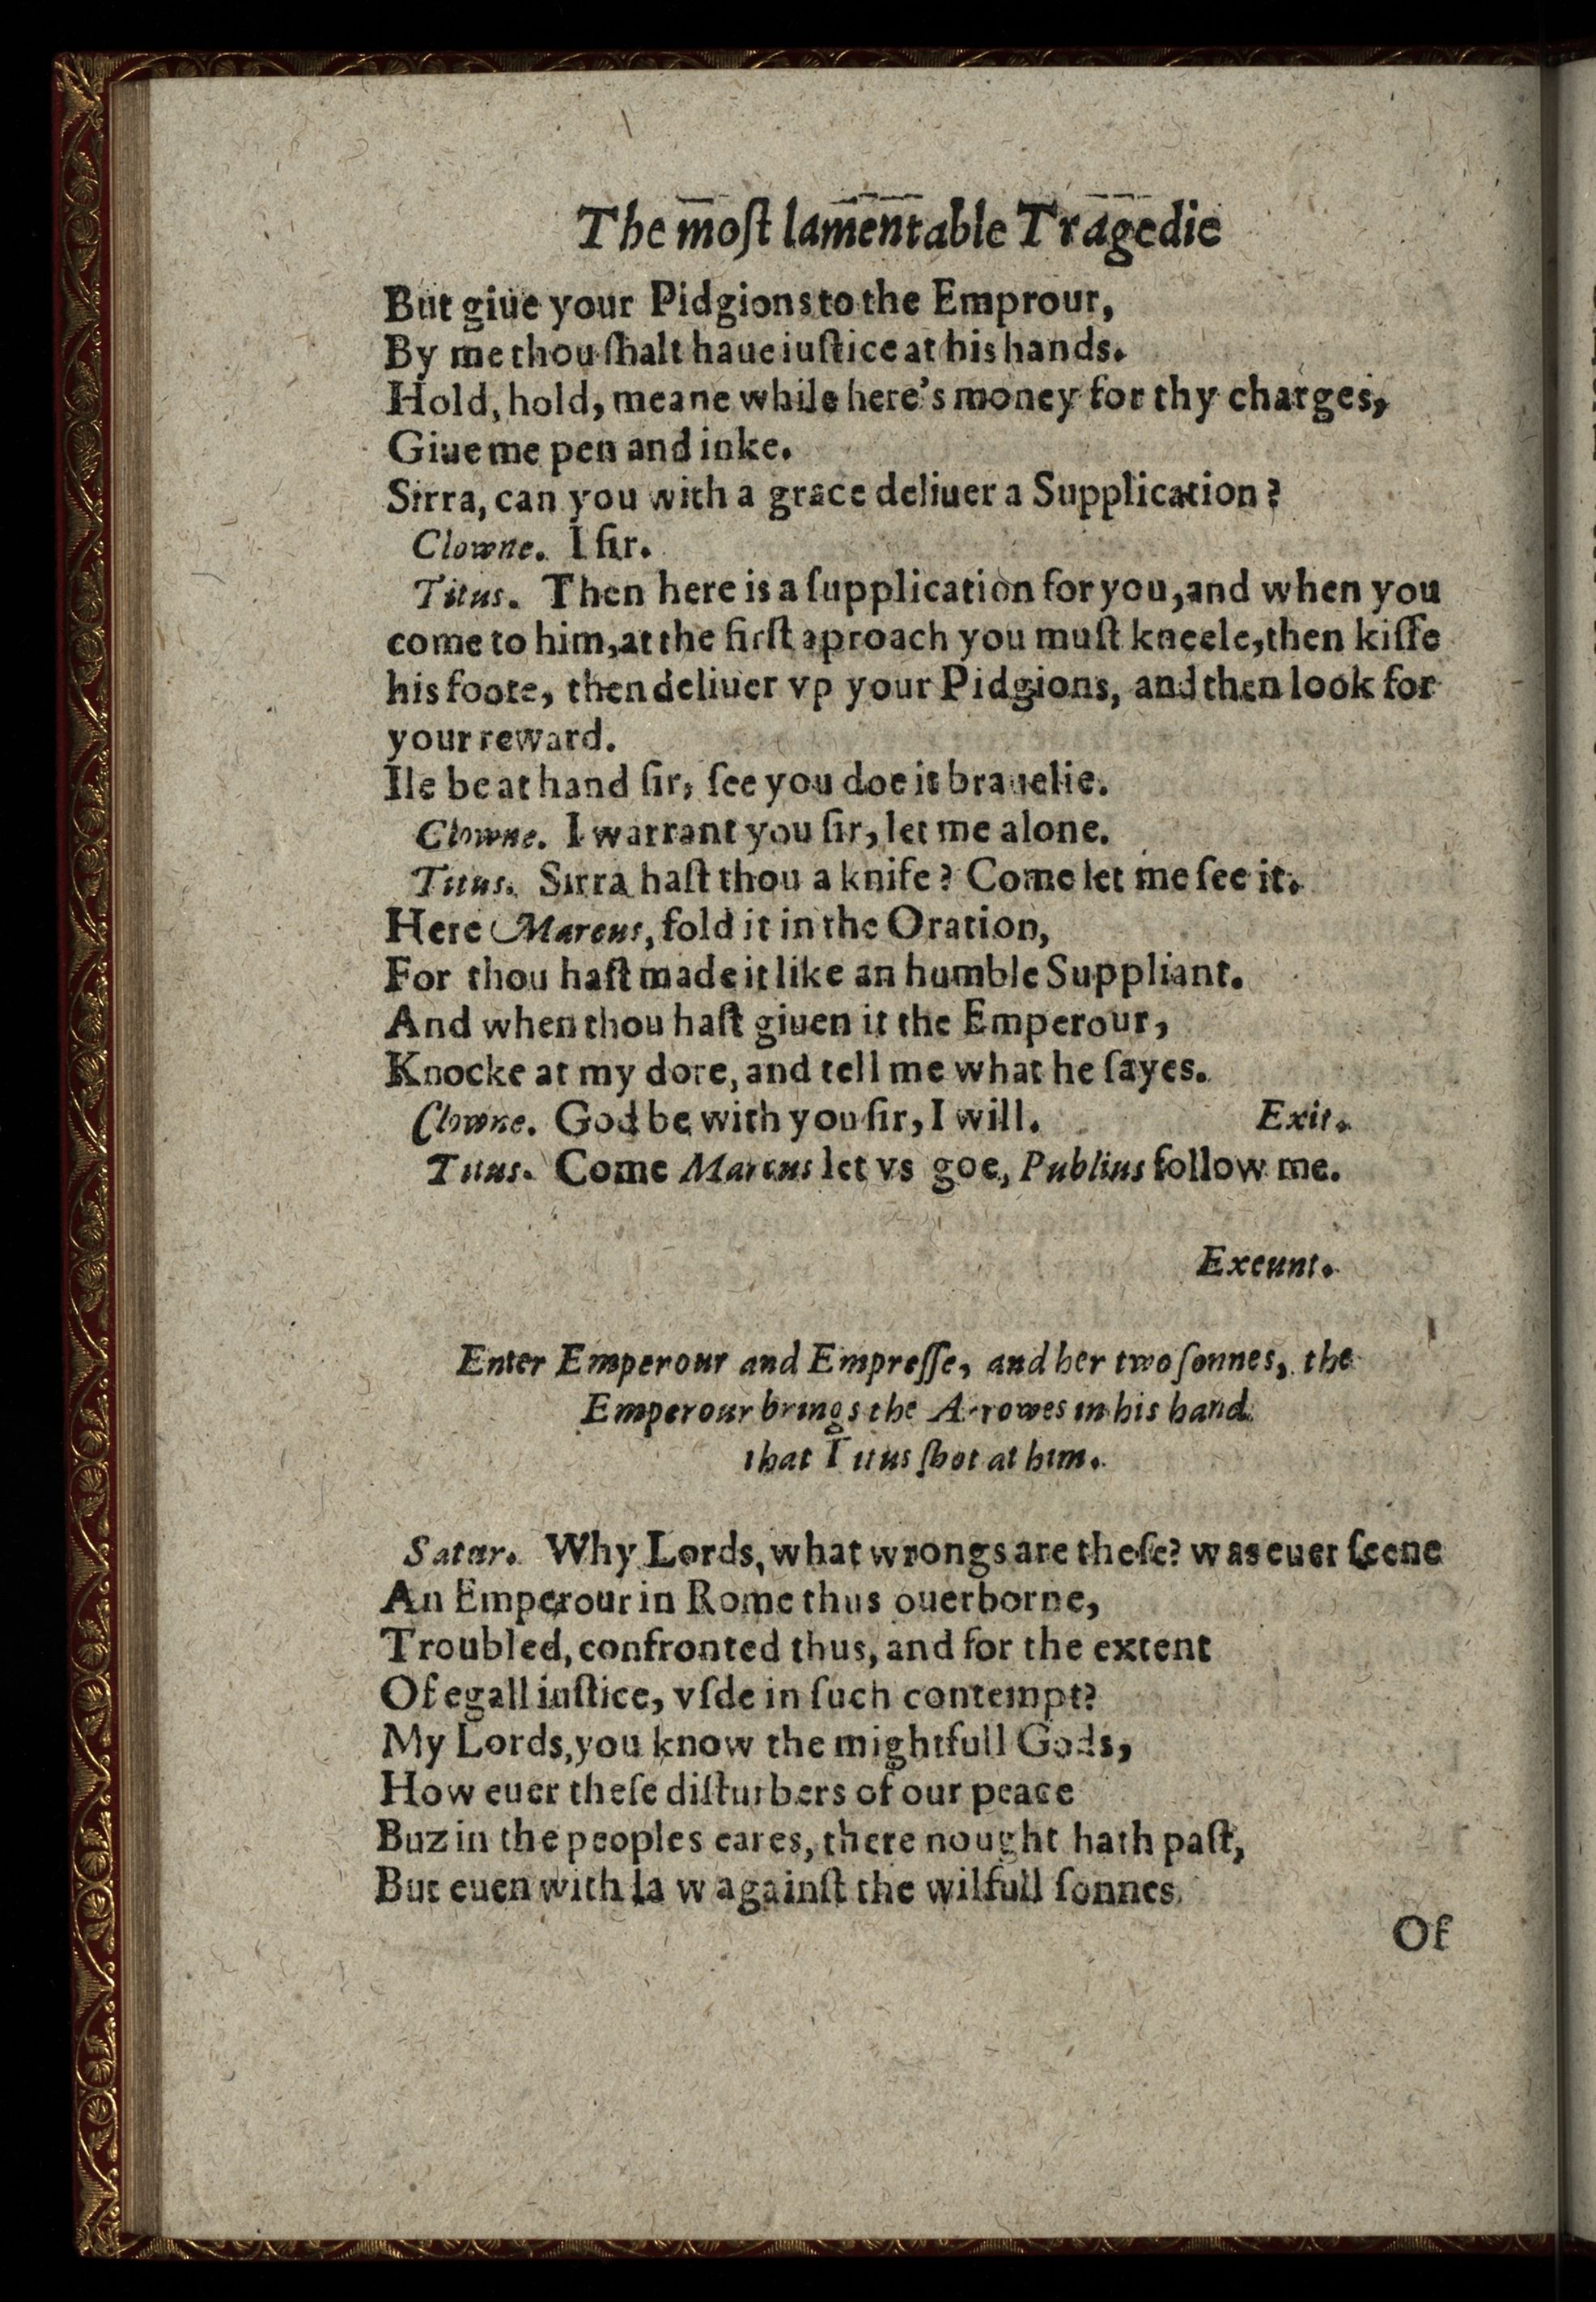 The most lamentable Tragedie
But giue your Pidgions to the Emprour,
By me thou ſhalt haue iuſtice at his hands.
Hold, hold, meane while here's money for thy charges,
Giue me pen and inke.
Sirra, can you with a grace deliuer a Supplication?
Clowne. I ſir.
Titus. Then here is a ſupplication for you, and when you
come to him, at the firſt aproach you muſt kneele, then kiſſe
his foote, then deliuer vp your Pidgions, and then look for
your reward.
Ile be at hand ſir, ſee you doe it brauelie.
Clowne. I warrant you ſir, let me alone.
Titus. Sirra haſt thou a knife? Come let me ſee it.
Here Marcus, fold it in the Oration,
For thou haſt made it like an humble Suppliant.
And when thou haſt giuen it the Emperour,
Knocke at my dore, and tell me what he ſayes.
Clowne. God be with you ſir, I will. Exit.
Titus. Come Marcus let vs goe, Publius follow me.
Exeunt.
Enter Emperour and Empreſſe, and her two ſonnes, the
Emperour brings the Arrowes in his hand
that Titus ſhot at him.
Satur. Why Lords, what wrongs are theſe? was euer ſeene
An Emperour in Rome thus ouerborne,
Troubled, confronted thus, and for the extent
Of egall iuſtice, vſde in ſuch contempt?
My Lords, you know the mightfull Gods,
How euer theſe diſturbers of our peace
Buz in the peoples eares, there nought hath paſt,
But euen with law againſt the wilfull ſonnes
Of